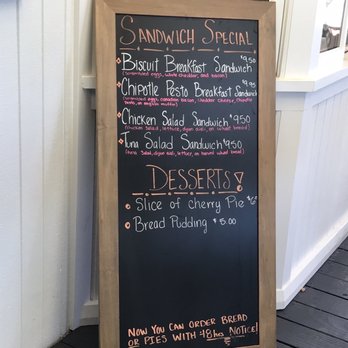 SANDWICH SPECIAL
Biscuit Breakfast Sandwich $9.50
(scrambled eggs, white cheddar, and bacon)
Chipotle Pesto Breakfast Sandwich $9.95
(scrambled eggs, canadian bacon, cheddar cheese, chipotle
pesto, on english muffin)
Chicken Salad Sandwich $9.50
(chicken salad, lettuce, dijon aioli, on wheat bread)
Tuna Salad Sandwich $9.50
(tuna salad, dijon aioli, lettuce, on toasted wheat bread)
DESSERTS!
Slice of cherry Pie
Bread Pudding $5.00
NOW YOU CAN ORDER BREAD
OR PIES WITH 48hrs NOTICE!